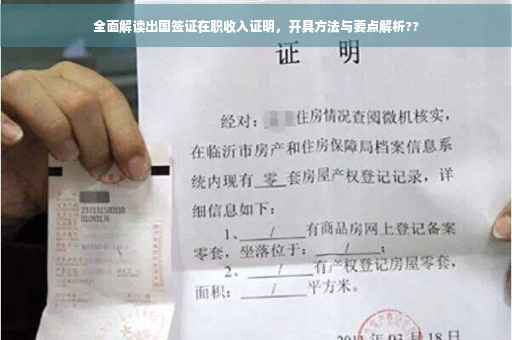 全面解读出国签证在职收入证明，开具方法与要点解析??
证 明
经对：住房情况查阅微机核实，
在临沂市房产和住房保障局档案信息系
统内现有 零 套房屋产权登记记录，详
细信息如下：
1、 / 有商品房网上登记备案
零套，坐落位于： / ；
2、 / 有产权登记房屋零套，
面积： / 平方米。
03月18日